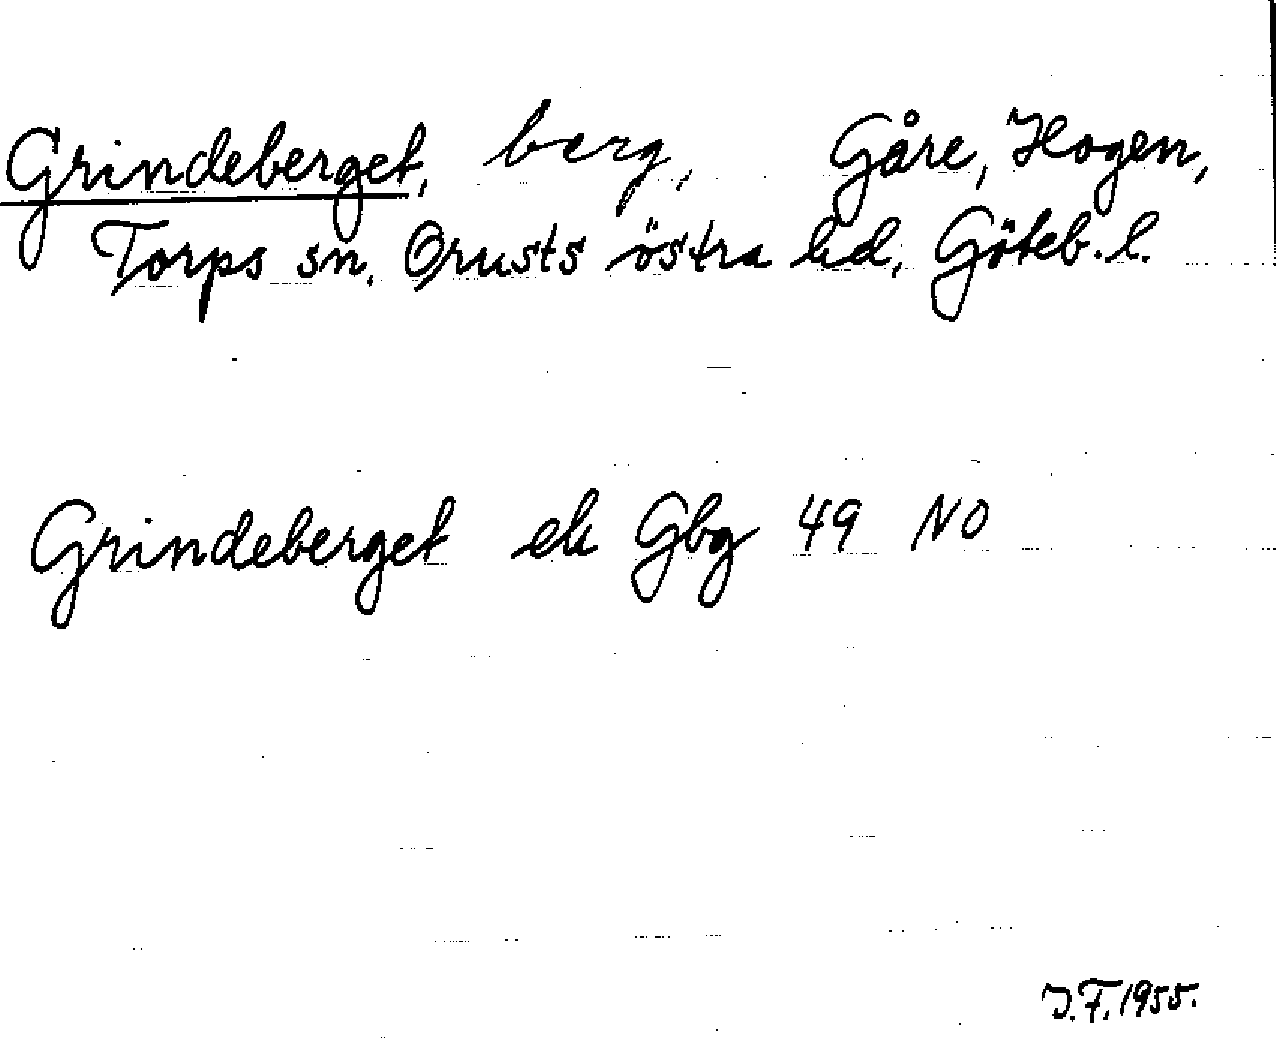 Grindeberget, berg, Gåre, Hogen,
Torps sn. Orusts östra hd, Göteb. l.
Grindeberget ek Gbg 49 NO
J.F. 1955.